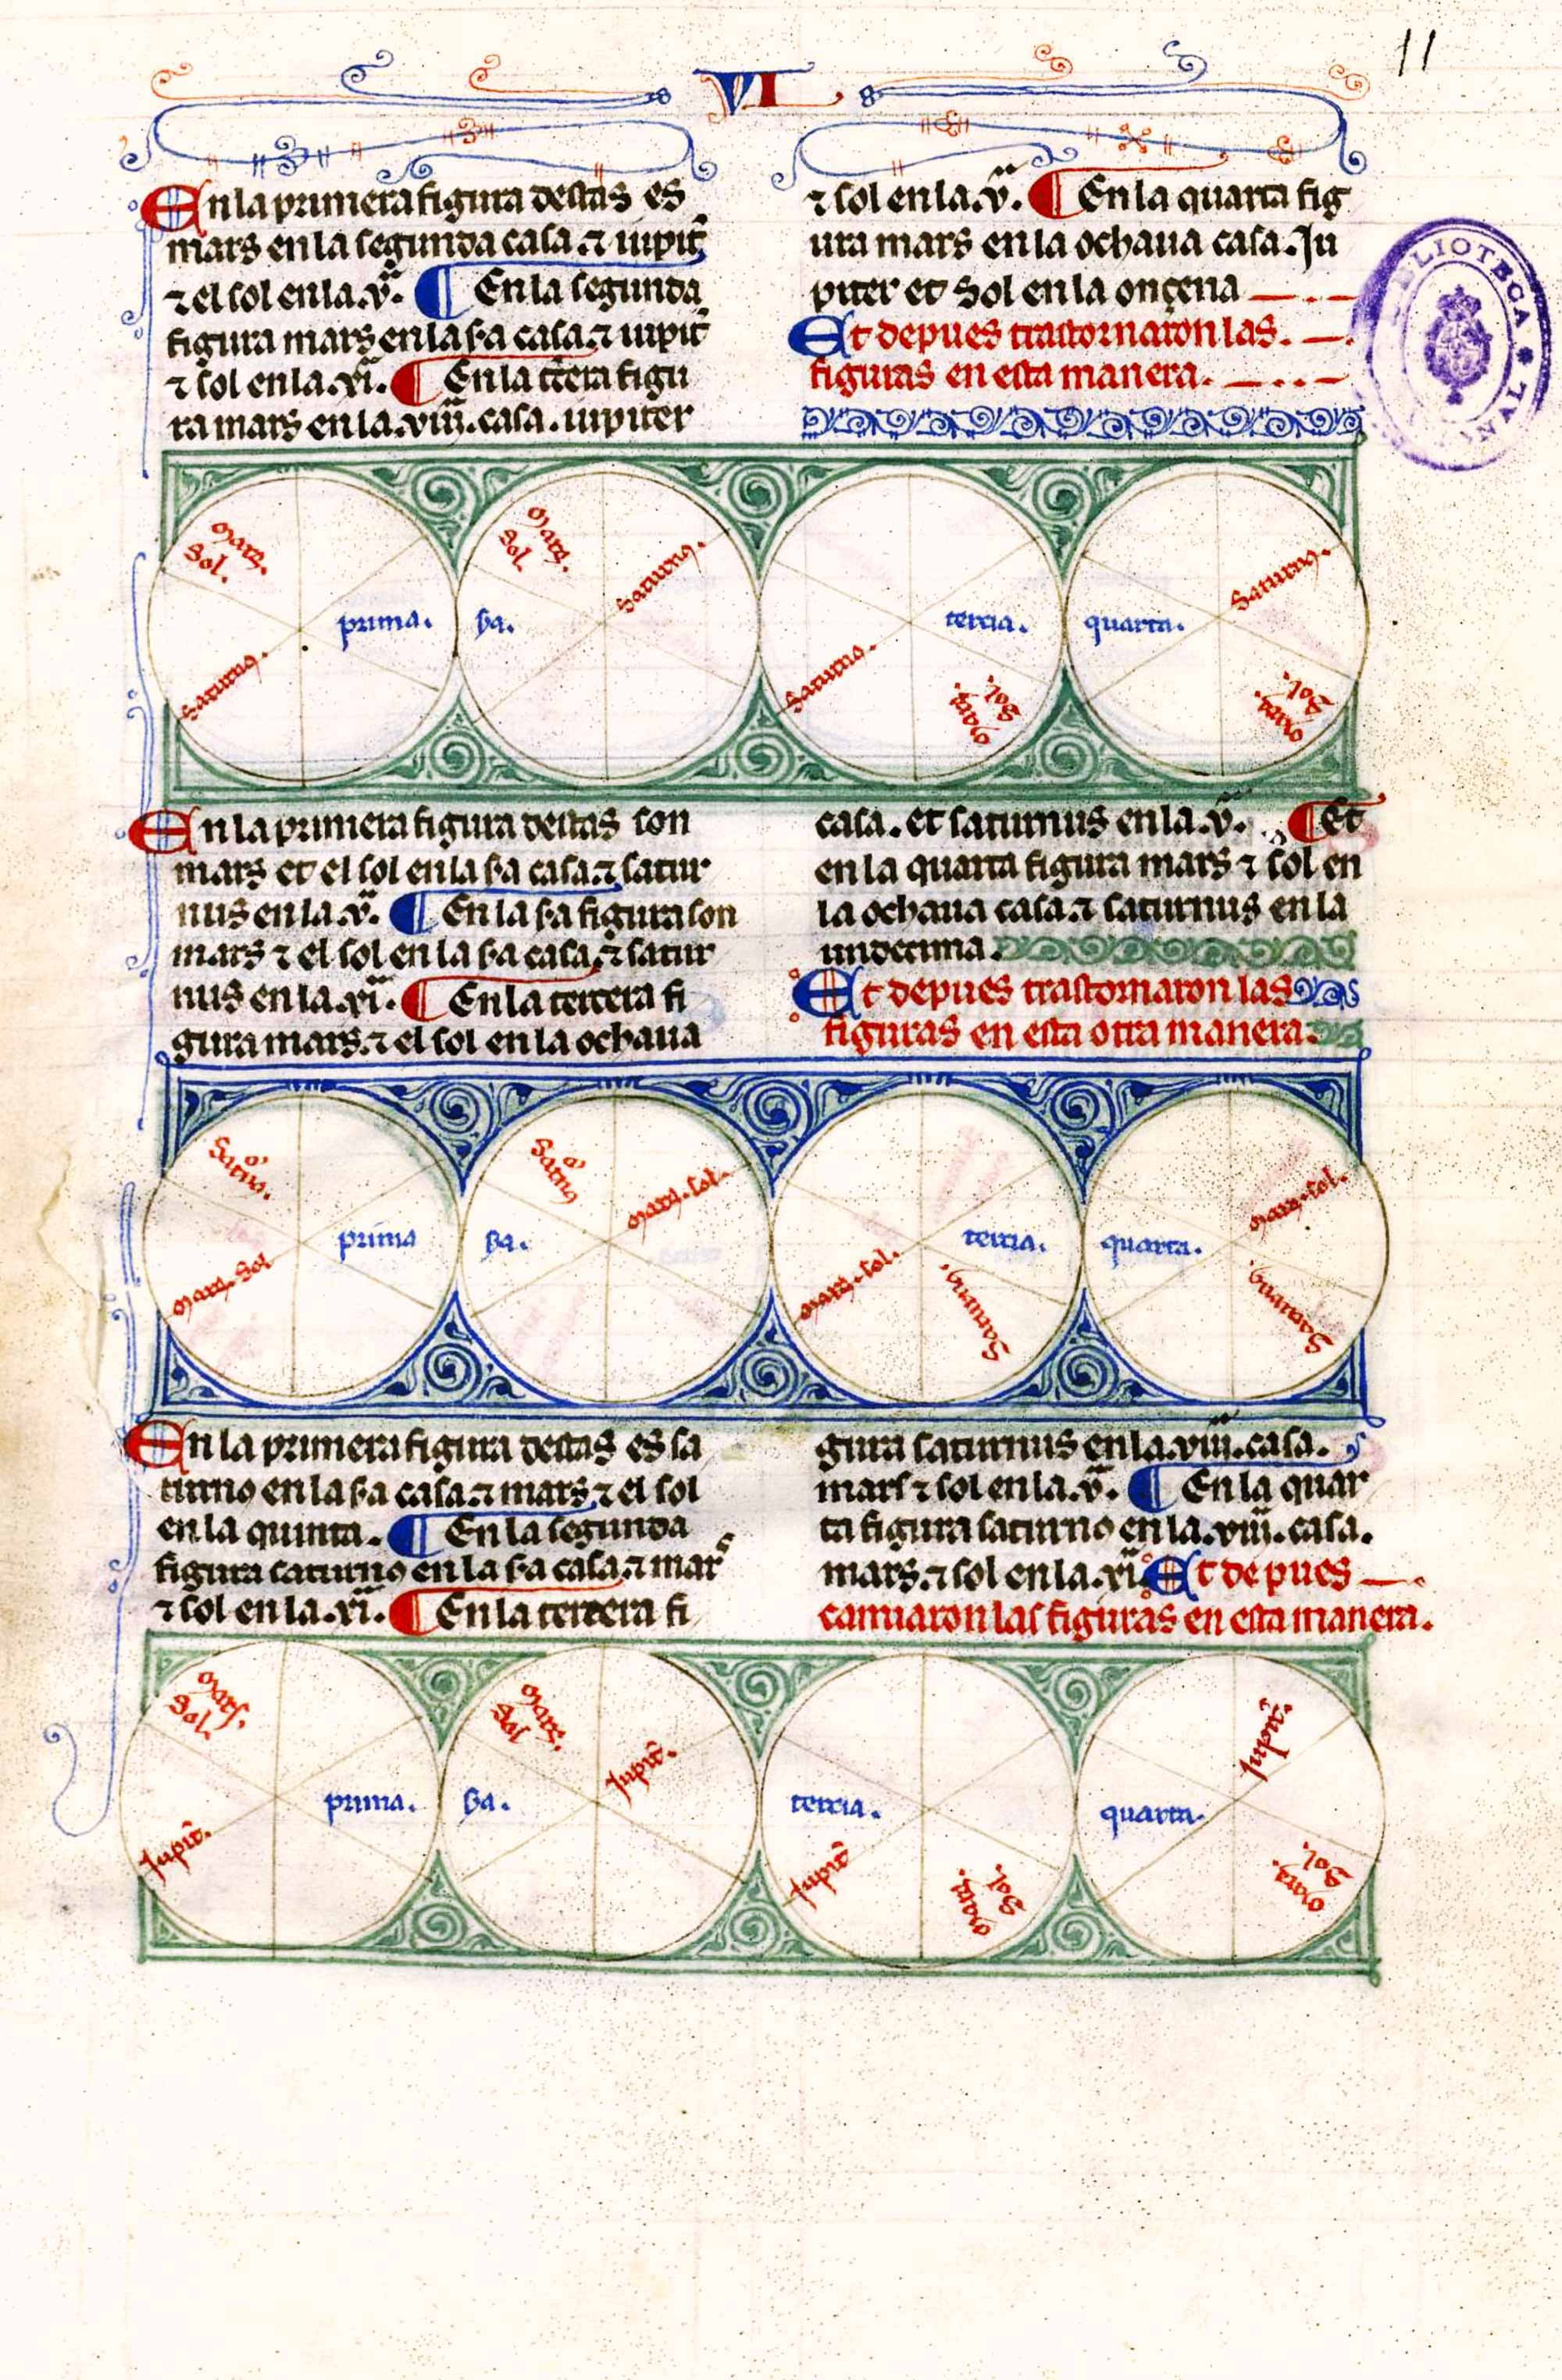 VI
11
En la primera figura destas es
mars en la segunda casa. ⁊ iupit̃
⁊ el sol en la .v.ª ¶ En la segunda
figura mars en la ija casa ⁊ iupit̃
⁊ sol en la .xi.ª ¶ En la t̃cera figu
ra mars en la .viii.ª casa. iupiter
⁊ sol en la .v.ª ¶ En la quarta fig
ura mars en la ochaua casa. Iu
piter et Sol en la onçena
Et depues trastornaron las.
figuras en esta manera.
BIBLIOTECA
mars.
Sol.
saturnus.
prima.
mars.
Sol.
saturnus.
ija.
saturnus.
tercia.
Sol.
mars.
quarta.
saturnus.
Sol.
mars.
En la primera figura destas son
mars et el sol en la ija casa ⁊ satur
nus en la .v.ª ¶ En la ija figura son
mars ⁊ el sol en la ija casa, ⁊ satur
nus en la .xi.ª ¶ En la tercera fi
gura mars. ⁊ el sol en la ochaua
casa. et saturnus en la .v.ª ¶ Et
en la quarta figura mars ⁊ sol en
la ochaua casa ⁊ saturnus en la
undecima.
Et depues trastornaron las
figuras en esta otra manera.
Satnus.
mars. Sol
prima
Satnus
mars. sol.
ija.
mars. sol.
tercia.
Saturnus.
quarta.
mars. sol.
Saturnus.
En la primera figura destas es sa
turno en la ija casa ⁊ mars ⁊ el sol
en la quinta. ¶ En la segunda
figura saturno en la ija casa ⁊ mars
⁊ sol en la .xi.ª ¶ En la tercera fi
gura saturnus en la .viii.ª casa.
mars ⁊ sol en la .v.ª ¶ En la quar
ta figura saturno en la .viii.ª casa.
mars. ⁊ sol en la .xi.ª Et depues
camiaron las figuras en esta manera.
mars.
Sol.
Jupit̃.
prima.
mars.
Sol
Jupit̃.
ija.
tercia.
Jupit̃
Sol.
mars.
Jupit̃.
quarta.
Sol.
mars.